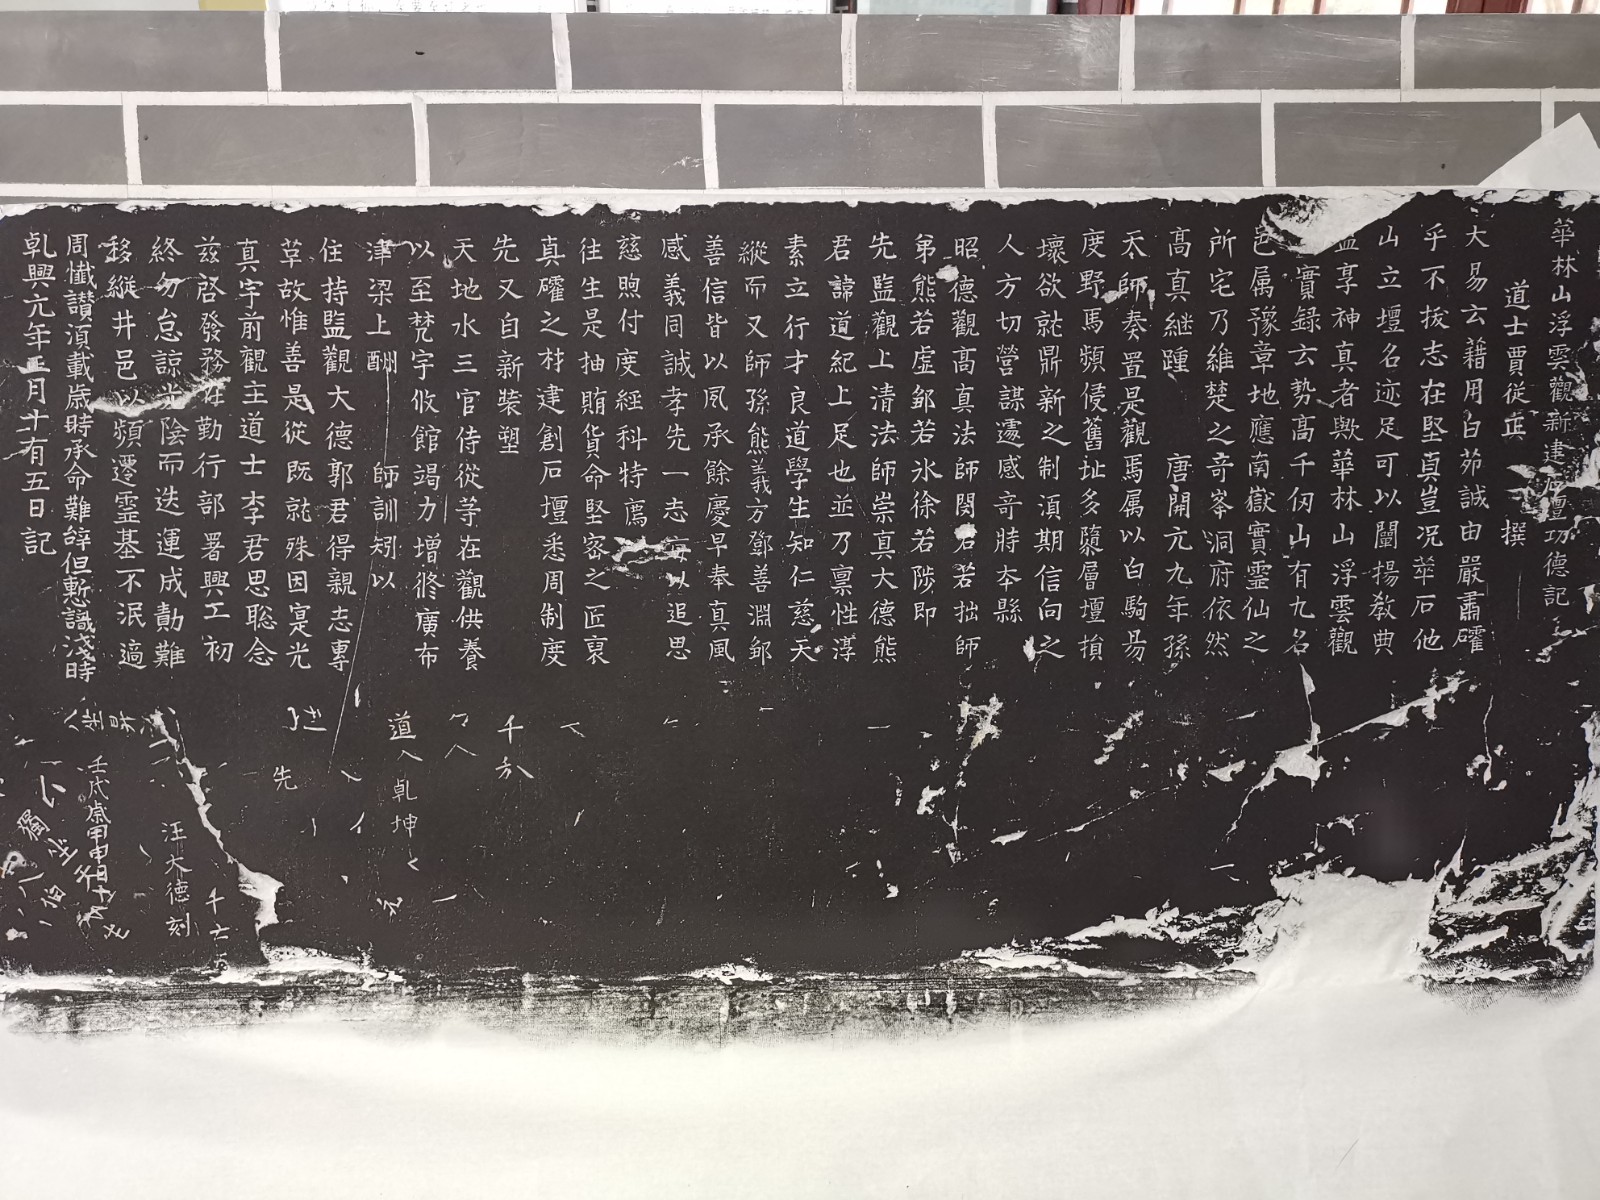 華林山浮雲觀新建石壇功德記
道士賈從正 撰
大易云藉用白茆誠由嚴肅礭
乎不拔志在堅真豈况葷石他
山立壇名迹足可以闡揚教典
益享神真者歟華林山浮雲觀
實録云勢髙千仞山有九名
邑属豫章地應南嶽實靈仙之
所宅乃維楚之竒峯洞府依然
髙真継踵 唐開元九年孫
天師奏置是觀焉属以白駒昜
度野馬頻侵舊址多隳層壇損
壞欲就鼎新之制湏期信向之
人方切營謀遽感竒時本縣
昭德觀髙真法師閔若拙師
弟熊若虚邹若氷徐若陟即
先監觀上清法師崇真大德熊
君諱道紀上足也並乃禀性淳
素立行才良道學生知仁慈天
縱而又師孫熊義方鄧善淵邹
善信皆以夙承餘慶早奉真風
感義同誠孝先一志每以追思
慈煦付度經科特薦
往生是抽賄貨命堅宻之匠裒
真礭之材建創石壇悉周制度
先又自新裝塑
天地水三官侍從等在觀供養
以至梵宇攸館竭力增修廣布
津梁上酬 師訓矧以
住持監觀大德郭君得親志專
草故惟善是從既就殊因寔光
真宇前觀主道士李君思聡念
兹啓發務在勤行部署興工初
終勿怠諒光陰而迭運成勣難
移縱井邑以頻遷霊基不泯適
周懴讃湏載歳時承命難辤但慙識淺時
乹興元年正月十有五日記
千
道 乹坤
先
汪大德刻
千
壬戌歳甲申日
獨坐